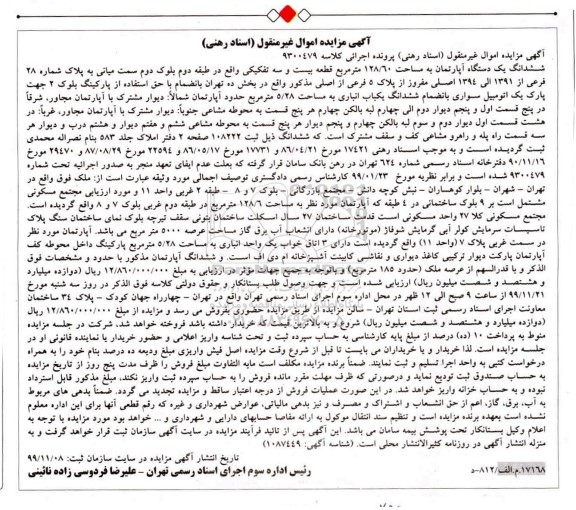 آگهی مزایده اموال غیرمنقول (اسناد رهنی)
آگهی مزایده اموال غیرمنقول (اسناد رهنی) پرونده اجرائی کلاسه ۹۳۰۰۴۷۹
ششدانگ یک دستگاه آپارتمان به مساحت ۱۲۸/۶۰ مترمربع قطعه بیست و سه تفکیکی واقع در طبقه دوم بلوک دوم سمت میانی به پلاک شماره ۲۸
فرعی از ۱۳۹۱ الی ۱۳۹۴ اصلی مفروز از پلاک ۵ فرعی از اصلی مذکور واقع در بخش ده تهران بانضمام با حق استفاده از پارکینگ بلوک ۲ جهت
پارک یک اتومبیل سواری بانضمام ششدانگ یکباب انباری به مساحت ۵/۲۸ مترمربع حدود آپارتمان شمالاً: دیوار مشترک با آپارتمان مجاور، شرقاً
در پنج قسمت اول و پنجم دیوار دوم الی چهارم لبه بالکن چهارم هر پنج قسمت به محوطه مشاعی جنوباً: دیوار مشترک با آپارتمان مجاور، غرباً: در
هشت قسمت اول دیوار دوم و سوم لبه بالکن چهارم و پنجم دیوار هر پنج قسمت به محوطه مشاعی ششم و هفتم دیوار و هشتم درب و دیوار هر
سه قسمت راه پله و راهرو مشاعی کف و سقف مشترک است. که ششدانگ ذیل ثبت ۱۰۸۲۲۲ صفحه ۲ دفتر املاک جلد ۵۸۳ بنام نصراله محمدی
ثبت گردیده است و به موجب اسناد رهنی ۱۷۴۲۱ مورخ ۸۶/۰۴/۲۱ و ۱۷۷۳۱ مورخ ۸۶/۰۵/۱۷ و ۲۲۵۹۴ مورخ ۸۷/۰۸/۲۹ و ۲۹۴۷۰ مورخ
۹۰/۱۱/۱۶ دفترخانه اسناد رسمی شماره ۶۲۴ تهران در رهن بانک سامان قرار گرفته که بعلت عدم ایفای تعهد منجر به صدور اجرائیه تحت شماره
۹۳۰۰۴۷۹ شده است و برابر نظریه مورخ ۹۹/۰۱/۲۳ کارشناس رسمی دادگستری توصیف اجمالی مورد وثیقه عبارت است از: ملک فوق واقع در
تهران – شهران – بلوار کوهساران – نبش کوچه دانش – مجتمع بازرگانی – بلوک ۷ و ۸ – طبقه ۲ غربی واحد ۱۱ و مورد ارزیابی مجتمع مسکونی
مشتمل است بر ۹ بلوک ساختمانی در ۴ طبقه که آپارتمان مورد نظر به مساحت ۱۲۸/۶ مترمربع در طبقه دوم غربی بلوک ۷ و ۸ واقع گردیده است.
مجتمع مسکونی کلا ۲۷ واحد مسکونی است قدمت ساختمان ۲۷ سال اسکلت ساختمان بتونی سقف تیرچه بلوک نمای ساختمان سنگ پلاک
تاسیسات سرمایش کولر آبی گرمایش شوفاژ (موتورخانه) دارای انشعاب آب برق گاز مساحت عرصه ۵۰۰۰ متر مربع می باشد. آپارتمان مورد نظر
در سمت غربی پلاک ۷ (واحد ۱۱) واقع گردیده است دارای ۳ اتاق خواب یک واحد انباری به مساحت ۵/۲۸ مترمربع پارکینگ داخل محوطه کف
آپارتمان پارکت دیوار ترکیبی کاغذ دیواری و نقاشی کابینت آشپزخانه ام دی اف است. و ششدانگ آپارتمان مذکور با حدود و مشخصات فوق
الذکر و با قدرالسهم از عرصه ملک (حدود ۱۸۵ مترمربع) و باتوجه به جمیع جهات مؤثر در ارزیابی به مبلغ ۱۲/۸۶۰/۰۰۰/۰۰۰ ریال (دوازده میلیارد
و هشتصد و شصت میلیون ریال) ارزیابی شده است و جهت وصول طلب بستانکار و حقوق دولتی کلاسه فوق الذکر در روز سه شنبه مورخ
۹۹/۱۱/۲۱ از ساعت ۹ صبح الی ۱۲ ظهر در محل اداره سوم اجرای اسناد رسمی تهران واقع در تهران – چهارراه جهان کودک – پلاک ۳۴ ساختمان
معاونت اجرای اسناد رسمی ثبت استان تهران – سالن مزایده از طریق مزایده حضوری بفروش می رسد و مزایده از مبلغ ۱۲/۸۶۰/۰۰۰/۰۰۰ ریال
(دوازده میلیارد و هشتصد و شصت میلیون ریال) شروع و به بالاترین قیمت که خریدار داشته باشد فروخته خواهد شد. شرکت در جلسه مزایده
منوط به پرداخت ۱۰ (ده) درصد از مبلغ پایه کارشناسی به حساب سپرده ثبت و تحت شناسه واریز اعلامی و حضور خریدار یا نماینده قانونی او در
جلسه مزایده است. لذا خریدار و یا خریداران می بایست تا قبل از شروع وقت مزایده اصل فیش واریزی مبلغ ودیعه ده درصد بنام خود را به همراه
درخواست کتبی به واحد اجرا تسلیم و ثبت نمایند. ضمناً برنده مزایده مکلف است مابه التفاوت مبلغ فروش را ظرف مدت پنج روز از تاریخ مزایده
به حساب صندوق ثبت تودیع نماید و درصورتی که ظرف مهلت مقرر مانده فروش را به حساب سپرده ثبت واریز نکند، مبلغ مذکور قابل استرداد
نبوده و به حساب خزانه واریز خواهد شد. در این صورت عملیات فروش از درجه اعتبار ساقط و مزایده تجدید می گردد. ضمناً بدهی های مربوط
به آب، برق، گاز، اعم از حق انشعاب و اشتراک و مصرف و نیز بدهی مالیاتی، عوارض شهرداری و غیره که رقم قطعی آنها برای این اداره معلوم
نشده است بعهده برنده مزایده است و تنظیم سند انتقال موکول به ارائه مفاصا حسابهای دارایی و شهرداری و ... خواهد بود مورد مزایده با توجه به
اعلام وکیل بستانکار تحت پوشش بیمه سامان می باشد. این آگهی پس از تائید فرآیند مزایده در سایت آگهی سازمان ثبت قرار خواهد گرفت و به
منزله انتشار آگهی در روزنامه کثیرالانتشار محلی است. (شناسه آگهی: ۱۰۸۷۴۴۹)
تاریخ انتشار آگهی مزایده در سایت سازمان ثبت: ۹۹/۱۱/۰۸
رئیس اداره سوم اجرای اسناد رسمی تهران – علیرضا فردوسی زاده نائینی
۱۷۱۶۸.م.الف/۸۱۲-د